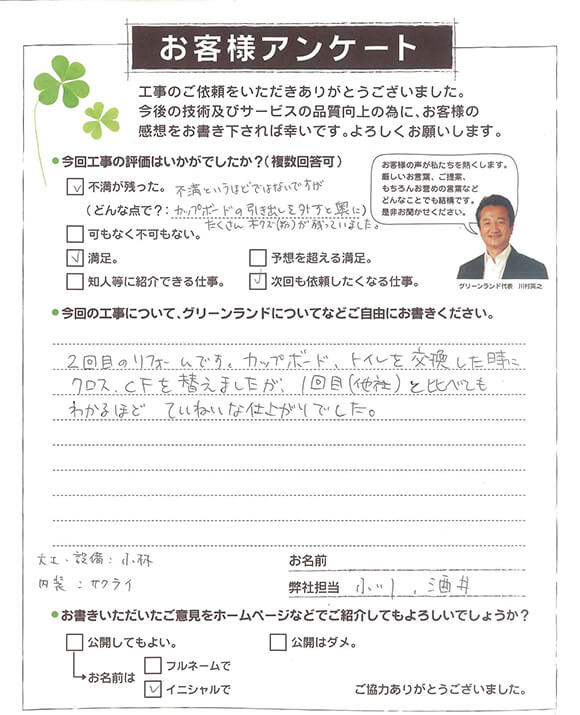 お客様アンケート
工事のご依頼をいただきありがとうございました。
今後の技術及びサービスの品質向上の為に、お客様の
感想をお書き下されば幸いです。よろしくお願いします。
●今回工事の評価はいかがでしたか？(複数回答可)
お客様の声が私たちを熱くします。
厳しいお言葉、ご提案、
もちろんお誉めの言葉など
どんなことでも結構です。
是非お聞かせください。
グリーンランド代表 川村英之
不満が残った。 不満というほどではないですが
(どんな点で？: カップボードの引き出しを外すと奥に)
たくさん木クズ(粉)が残っていました。
可もなく不可もなし。
満足。 予想を超える満足。
知人等に紹介できる仕事。 次回も依頼したくなる仕事。
●今回の工事について、グリーンランドについてなどご自由にお書きください。
2回目のリフォームです。カップボード、トイレを交換した時に
クロス、CFを替えましたが、1回目(他社)と比べても
わかるほど ていねいな仕上がりでした。
大工・設備：小林
内装：サクライ
お名前
弊社担当 小川、酒井
●お書きいただいたご意見をホームページなどでご紹介してもよろしいでしょうか？
公開してもよい。 公開はダメ。
お名前は フルネームで
イニシャルで
ご協力ありがとうございました。